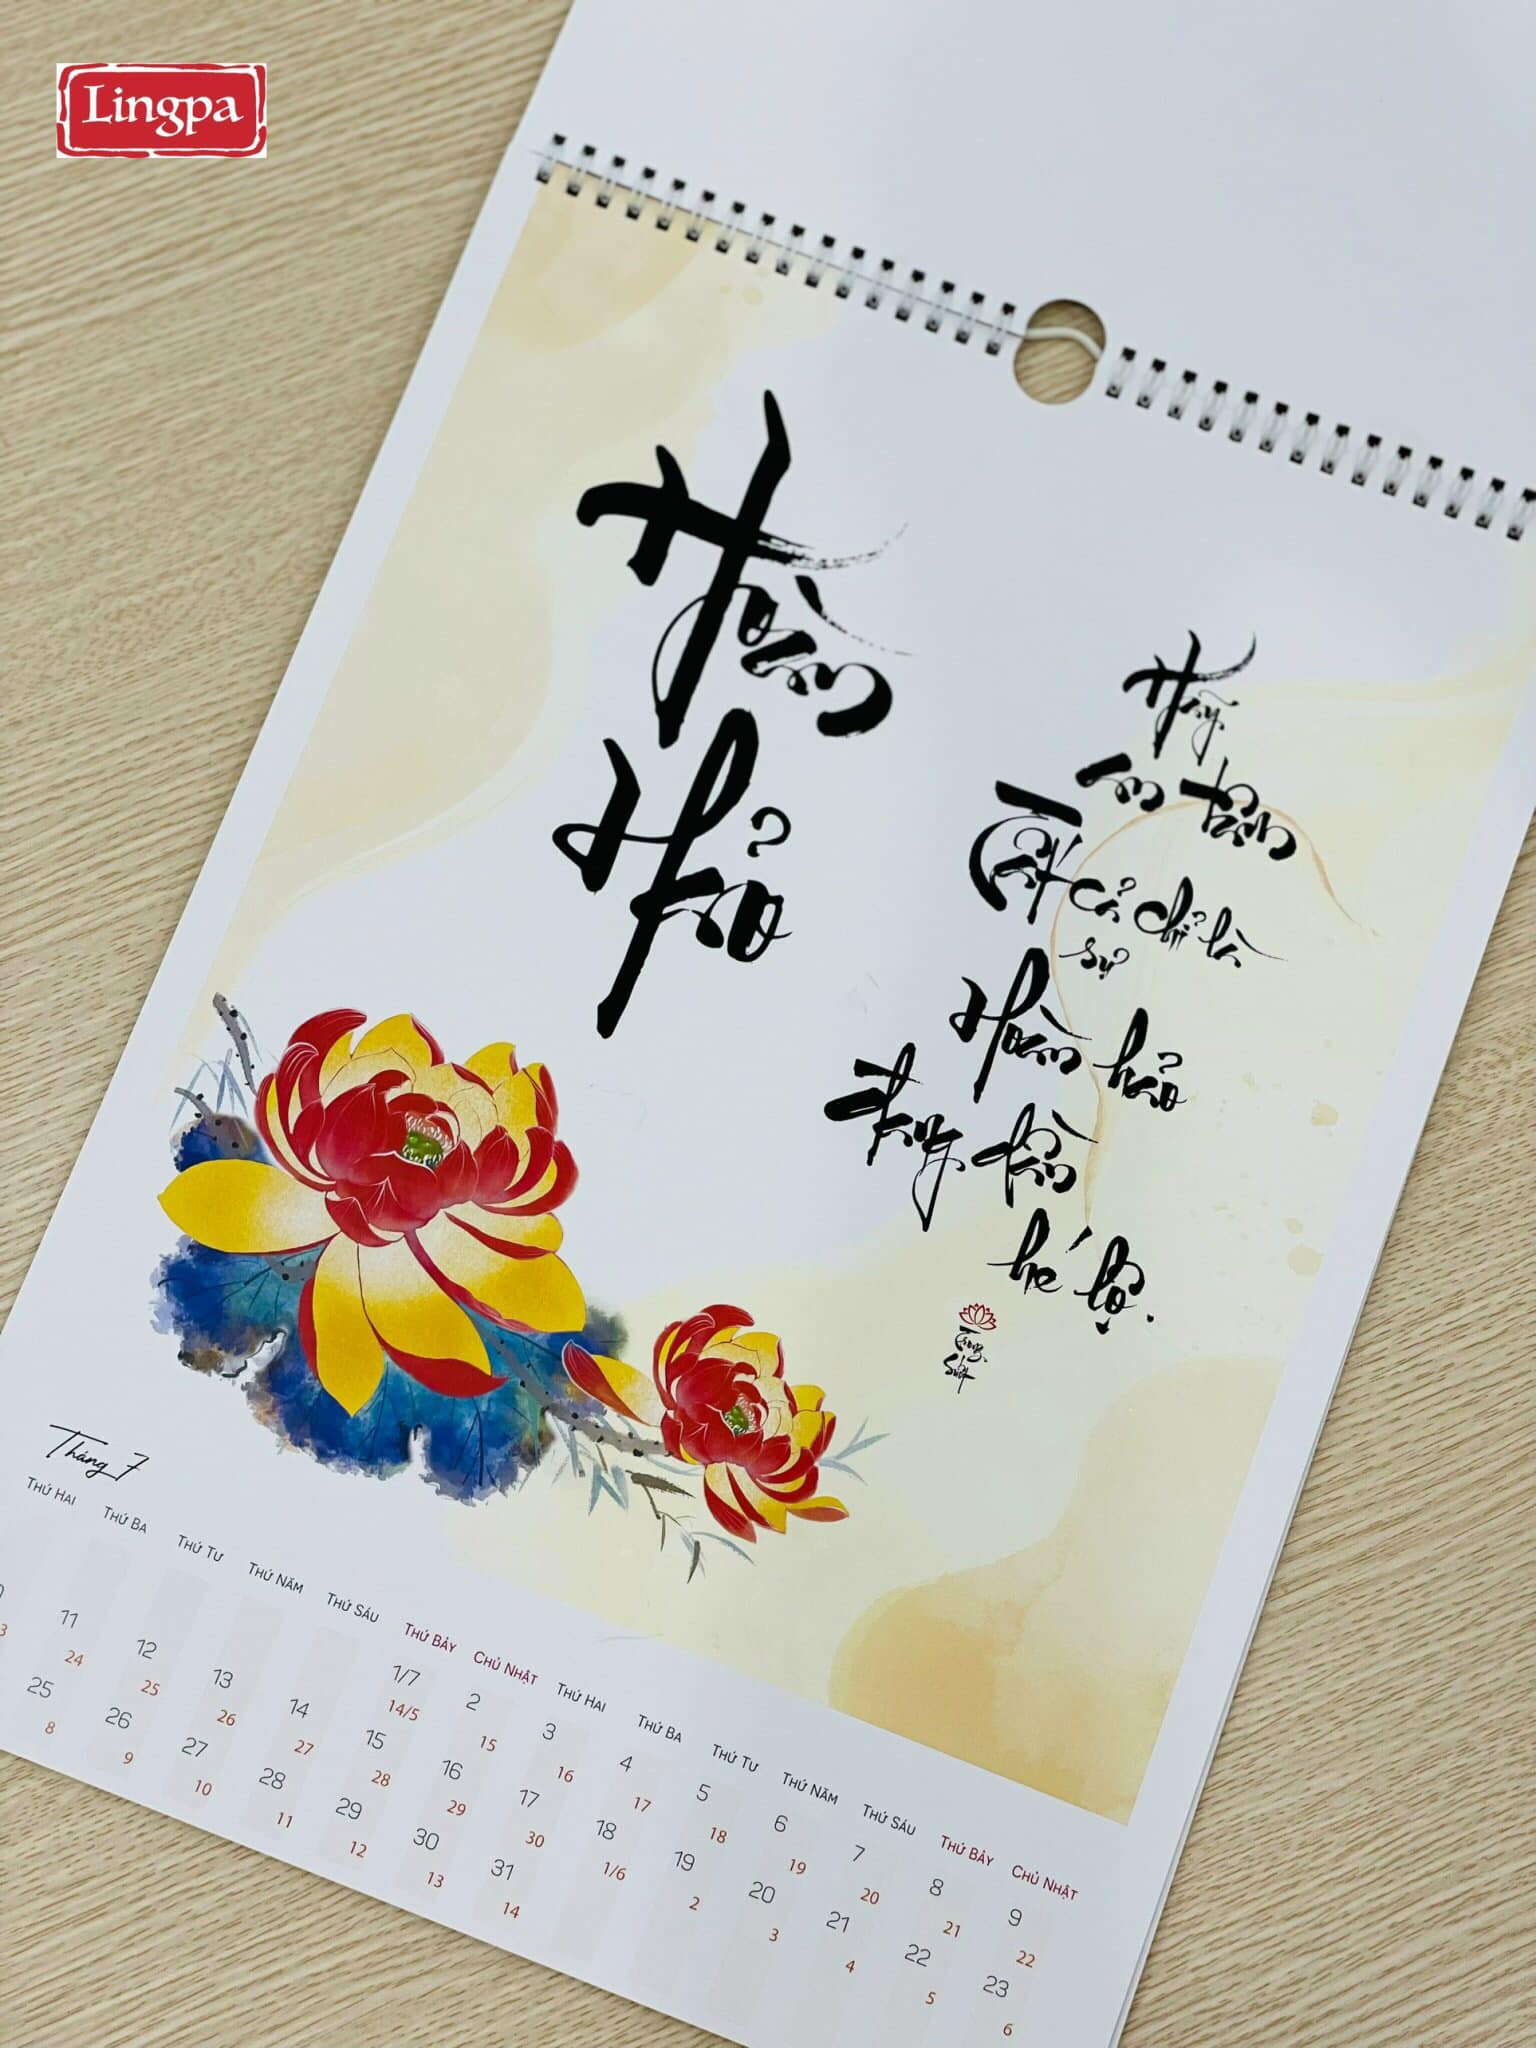 Lingpa
Hoàn
Hảo
Hãy
an tâm
Tất cả chỉ là
sự
Hoàn hảo
đang dần
hé lộ.
Trong
Suốt
Tháng 7
THỨ HAI THỨ BA THỨ TƯ THỨ NĂM THỨ SÁU THỨ BẢY CHỦ NHẬT THỨ HAI THỨ BA THỨ TƯ THỨ NĂM THỨ SÁU THỨ BẢY CHỦ NHẬT
1/7 2 3 4 5 6 7 8 9
14/5 15 16 17 18 19 20 21 22
11 12 13 14 15 16 17 18 19 20 21 22 23
24 25 26 27 28 29 30 1/6 2 3 4 5 6
25 26 27 28 29 30 31
8 9 10 11 12 13 14